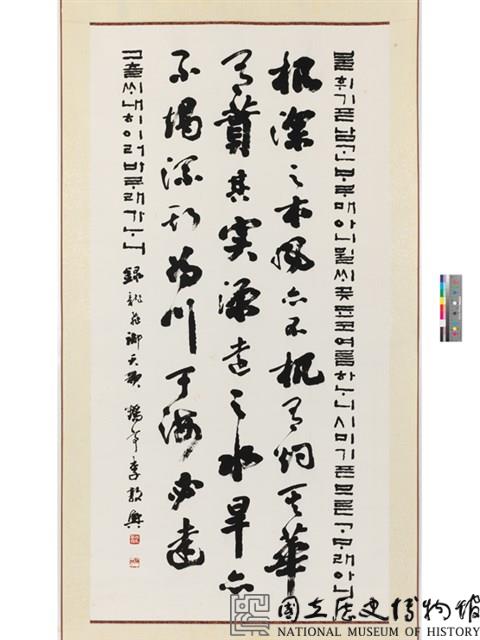 불휘기픈남ᄀᆞᆫᄇᆞᄅᆞ매아니뮐ᄊᆡ곶됴코여름하ᄂᆞ니ᄉᆡ미기픈므른ᄀᆞᄆᆞ래아니
根深之木風亦不扤有灼其華
有蕡其實源遠之水旱亦
不竭流斯為川于海必達
그츨ᄊᆡ내히이러바ᄅᆞ래가ᄂᆞ니 錄龍飛御天歌 鶴亭李敦興
國立歷史博物館
NATIONAL MUSEUM OF HISTORY